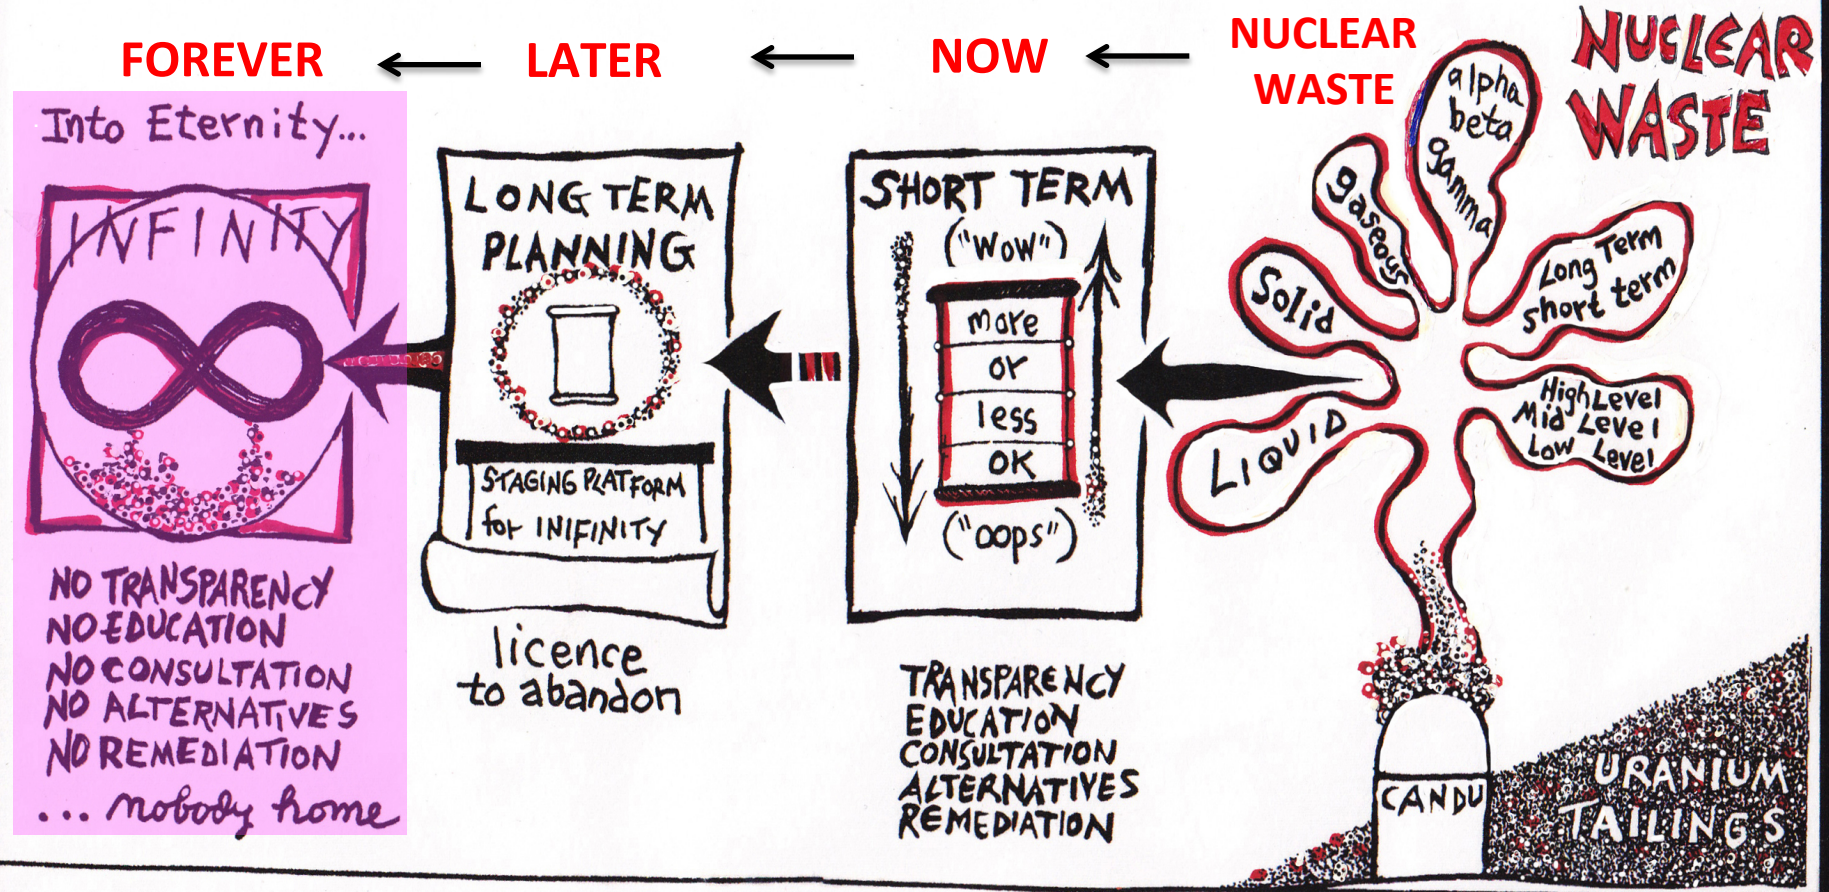 FOREVER
LATER
NOW
NUCLEAR
WASTE
NUCLEAR
WASTE
Into Eternity...
INFINITY
NO TRANSPARENCY
NO EDUCATION
NO CONSULTATION
NO ALTERNATIVES
NO REMEDIATION
... nobody home
LONG TERM
PLANNING
STAGING PLATFORM
for INIFINITY
licence
to abandon
SHORT TERM
("WOW")
more
or
less
OK
("oops")
TRANSPARENCY
EDUCATION
CONSULTATION
ALTERNATIVES
REMEDIATION
alpha
beta
gamma
gaseous
Solid
LIQUID
Long Term
short term
High Level
Mid Level
Low Level
CANDU
URANIUM
TAILINGS